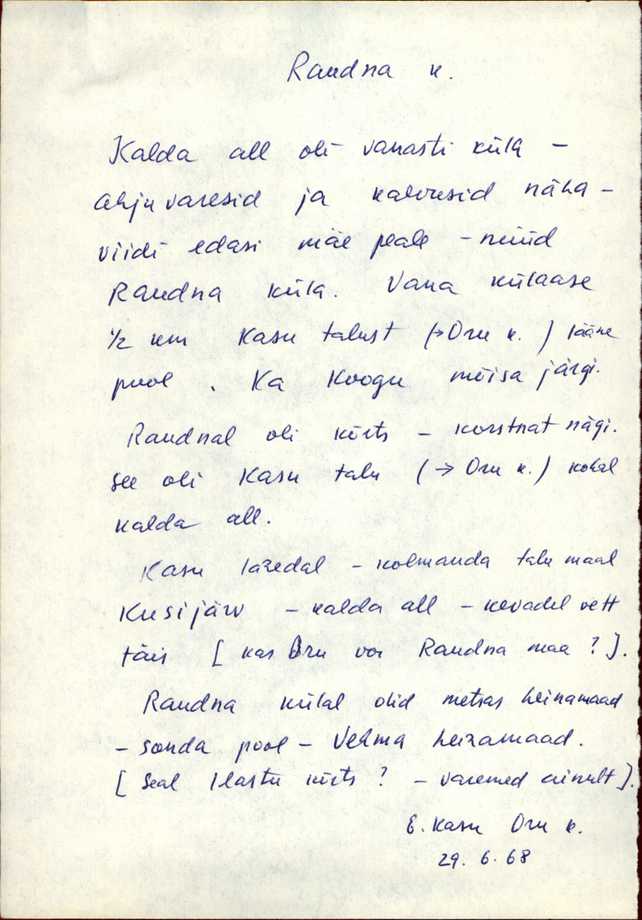 Raudna k.
Kalda all oli vanasti küla –
ahjuvaresid ja kalvusid näha –
viidi edasi mäe peale – nüüd
Raudna küla. Vana külaase
1/2 km Kasu talust (→ Oru k.) lääne
pool. Ka Koogu mõisa järgi.
Raudnal oli kõrts – korstnat nägi.
See oli Kasu talu (→ Oru k.) kohal
kalda all.
Kasu lähedal – kolmanda talu maal
Kusijärv – kalda all – kevadel vett
täis [kas Oru või Raudna maa?].
Raudna külal olid metsas heinamaad
– Sonda pool – Vehma heinamaad.
[Seal Ilastu kõrts? – varemed ainult].
E. Kasu Oru k.
29. 6. 68